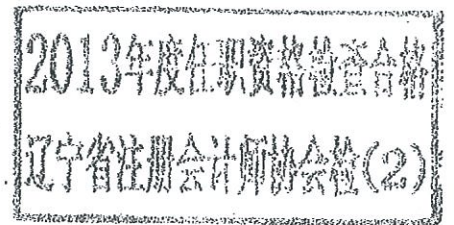 2013年度任职资格检查合格
辽宁省注册会计师协会检(2)